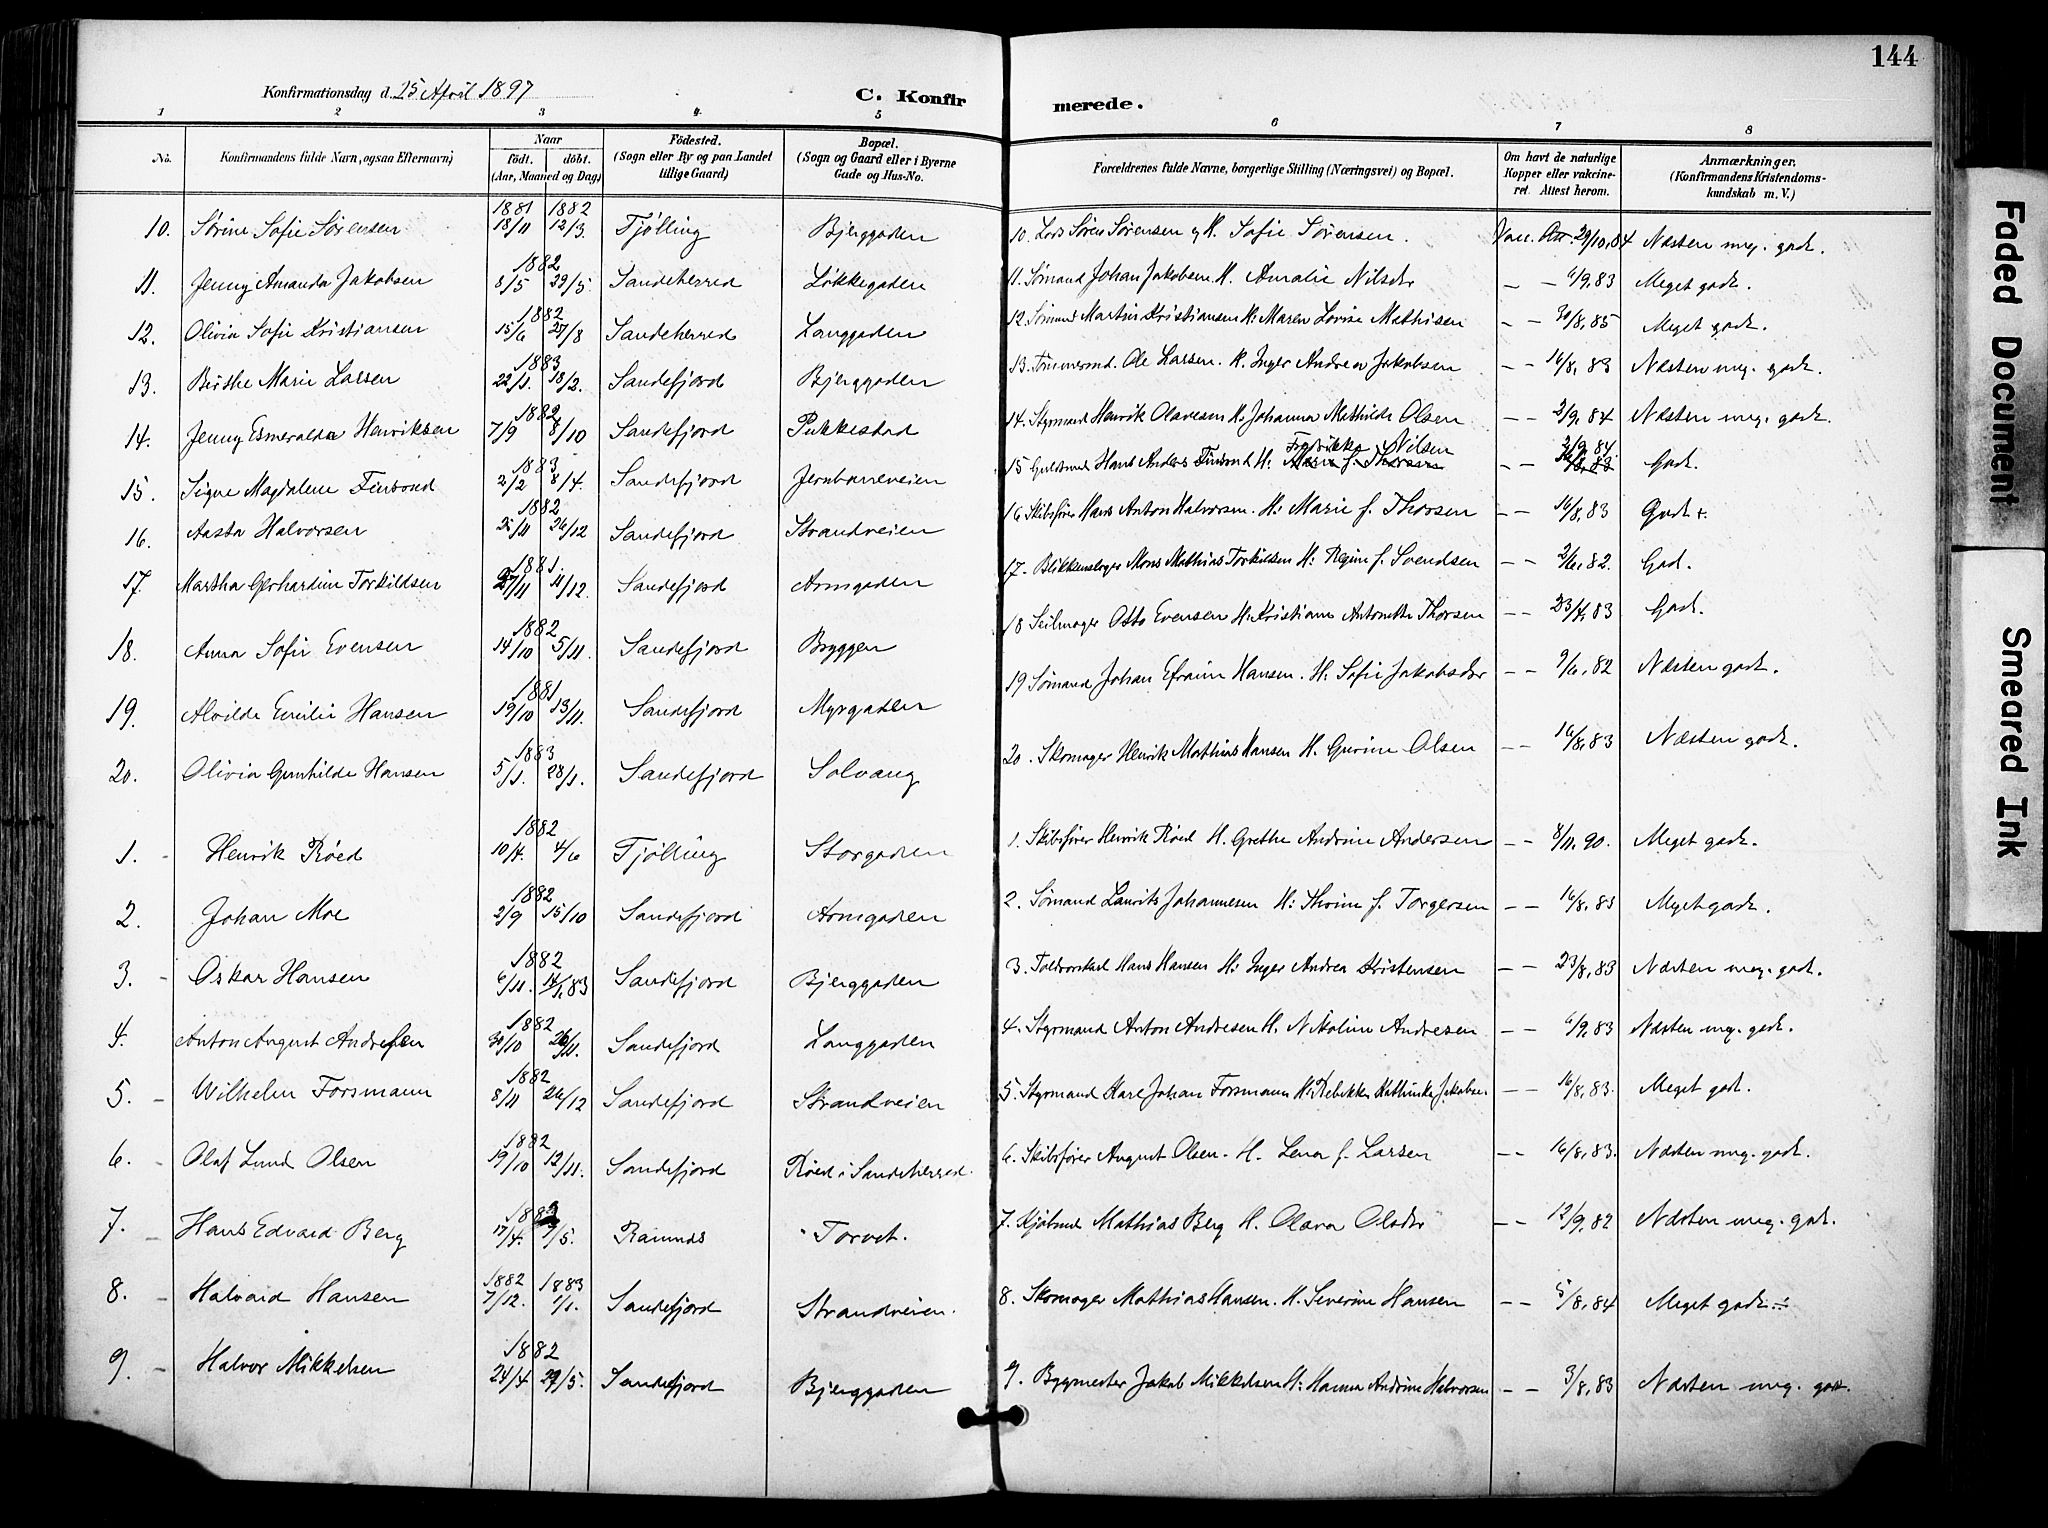 144
Konfirmationsdag d. 25 April 1897
C. Konfirmerede.
1 2 3 4. 5 6 7 8
No. Konfirmandens fulde Navn, ogsaa Efternavn) Naar födt. döbt. (Aar, Maaned og Dag) Födested. (Sogn eller By og paa Landet tillige Gaard) Bopæl. (Sogn og Gaard eller i Byerne Gade og Hus-No. Forældrenes fulde Navne, borgerlige Stilling (Næringsvei) og Bopæl. Om havt de naturlige Kopper eller vakcineret. Attest herom. Anmærkninger. (Konfirmandens Kristendomskundskab m. V.)
10. Sørine Sofie Sørensen 1881 18/11 1882 12/3. Tjølling Bjerggaden 10. Søren Sørensen og H. Sofie Sørensen. Vacc. Att. 29/10, 84 Næsten meg. godt.
11. Jenny Amanda Jakobsen 1882 8/5 29/5. Sandeherred Løkkegaden 11. Sømand Johan Jakobsen H. Amalie Nilsdr — — 6/9, 83 Meget godt.
12. Olivia Sofie Kristiansen 1882 15/6 27/8 Sandeherred Langgaden 12. Sømand Martin Kristiansen H: Maren Lovise Mathisen — — 30/8, 85 Meget godt.
13. Birthe Marie Larsen 1883 22/1. 18/2. Sandefjord Bjerggaden 13. Tømmermd. Ole Larsen. H. Inger Andrea Jakobsen — — 16/8, 83 Næsten meg. godt.
14. Jenny Esmeralda Henriksen 1882 7/9 8/10 Sandefjord Pukkestad 14. Styrmand Henrik Olavesen H: Johanna Mathilde Olsen — — 2/9, 84 Næsten meg. godt.
15. Signe Magdalene Finsrud 1883 2/2 8/4. Sandefjord Jernbaneveien 15 Guldsmed Hans Anders Finsrud H: Fredrikke Nilsen — — 2/9, 84. Godt.
16. Aasta Halvorsen 1882 26/12 Sandefjord Strandveien 16 Skibsfører Hans Anton Halvorsen. H: Marie f. Thorsen — — 16/8, 83 Godt +.
17. Martha Gerhardine Torkildsen 1881. 27/11 11/12. Sandefjord Asmgaden 17. Blikkenslager Mons Mathias Torkildsen H: Regine f. Svendsen — — 2/6, 82. God.
18. Anna Sofie Evensen 1882 14/10 5/11. Sandefjord Bryggen 18 Seilmager Otto Evensen H: Kristiane Antonette Thorsen — — 23/4, 83 Godt.
19. Alvilde Emilie Hansen 1881 19/10 13/11. Sandefjord Myrgaden 19 Sømand Johan Efraim Hansen. H. Sofie Jakobsdr — — 9/6, 82 Næsten godt.
20. Olivia Gunhilde Hansen 1883 5/1. 28/1. Sandefjord Solvang 20. Skomager Henrik Mathias Hansen H. Gurine Olsen — — 16/8, 83 Næsten godt.
1. - Henrik Røed 1882 10/4. 4/6 Tjølling Storgaden 1. Skibsfører Henrik Røed H. Grethe Andrine Andersen — — 8/11. 90. Meget godt.
2. Johan Moe 1882 2/9 15/10 Sandefjord Asmgaden 2. Sømand Laurits Johannesen H: Thrine f. Torgersen — — 16/8, 83 Meget godt.
3. - Oskar Hansen 1882 6/11. 14/1, 83 Sandefjord Bjerggaden 3. Toldvorskarl Hans Hansen H: Inger Andrea Kristensen — — 23/8, 83 Næsten meg. godt.
4. - Anton August Andresen 1882 30/10 26/11. Sandefjord Langgaden 4. Styrmand Anton Andresen H. Nikoline Andresen — — 6/9, 83 Næsten meg. godt.
5. - Wilhelm Forsmann 1882 8/11 26/12 Sandefjord Strandveien 5. Styrmand Karl Johan Forsmann H: Rebekka Kathinka Jakobsen — — 16/8, 83. Meget godt.
6. - Olaf Lund Olsen 1882 19/10 12/11. Sandefjord Røed i Sandeherred. 6. Skibsfører August Olsen. H. Lena f. Larsen — — 16/8, 83. Næsten meg. godt.
7. - Hans Edvard Berg 17/4. 7/5. Ramnæs Torvet. 7. Kjøbmd Mathias Berg H. Olava Olsdr — — 12/9, 82 Næsten meg. godt.
8. - Halvard Hansen 1882 7/12. 1883 7/1. Sandefjord Strandveien. 8. Skomager Mathias Hansen. H. Severine Hansen — — 5/8, 84 Meget godt ÷
9. - Halvor Mikkelsen 1882 24/4 29/5. Sandefjord Bjerggaden 9. Bygmester Jakob Mikkelsen H: Hanna Andrine Halvorsen — — 3/8, 83 Næsten meg. godt.
Faded Document
Smeared Ink